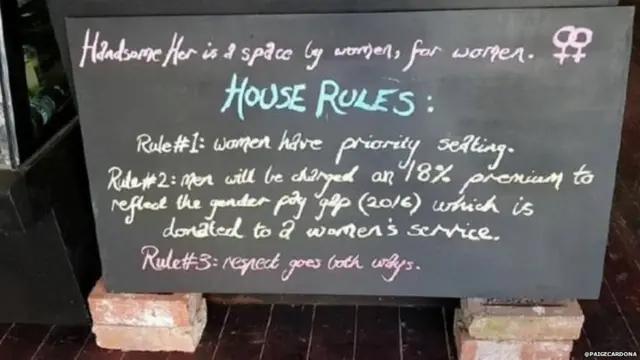 Handsome Her is a space by women, for women.
HOUSE RULES:
Rule #1: women have priority seating.
Rule #2: men will be charged an 18% premium to
reflect the gender pay gap (2016) which is
donated to a women's service.
Rule #3: respect goes both ways.
@PAIGECARDONA